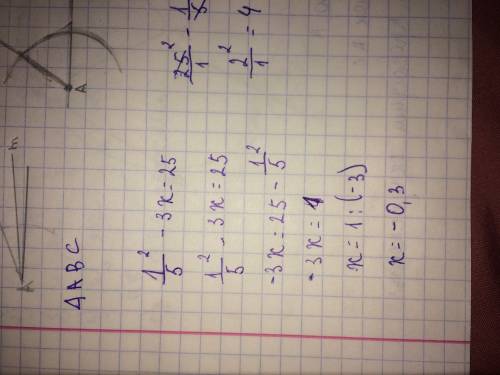 m
K
A
△ABC
1/5² - 3x = 25
1/5² - 3x = 25
-3x = 25 - 1/5²
-3x = 1
x = 1 : (-3)
x = -0,3
25²/1 - 1/5
2²/1 = 4